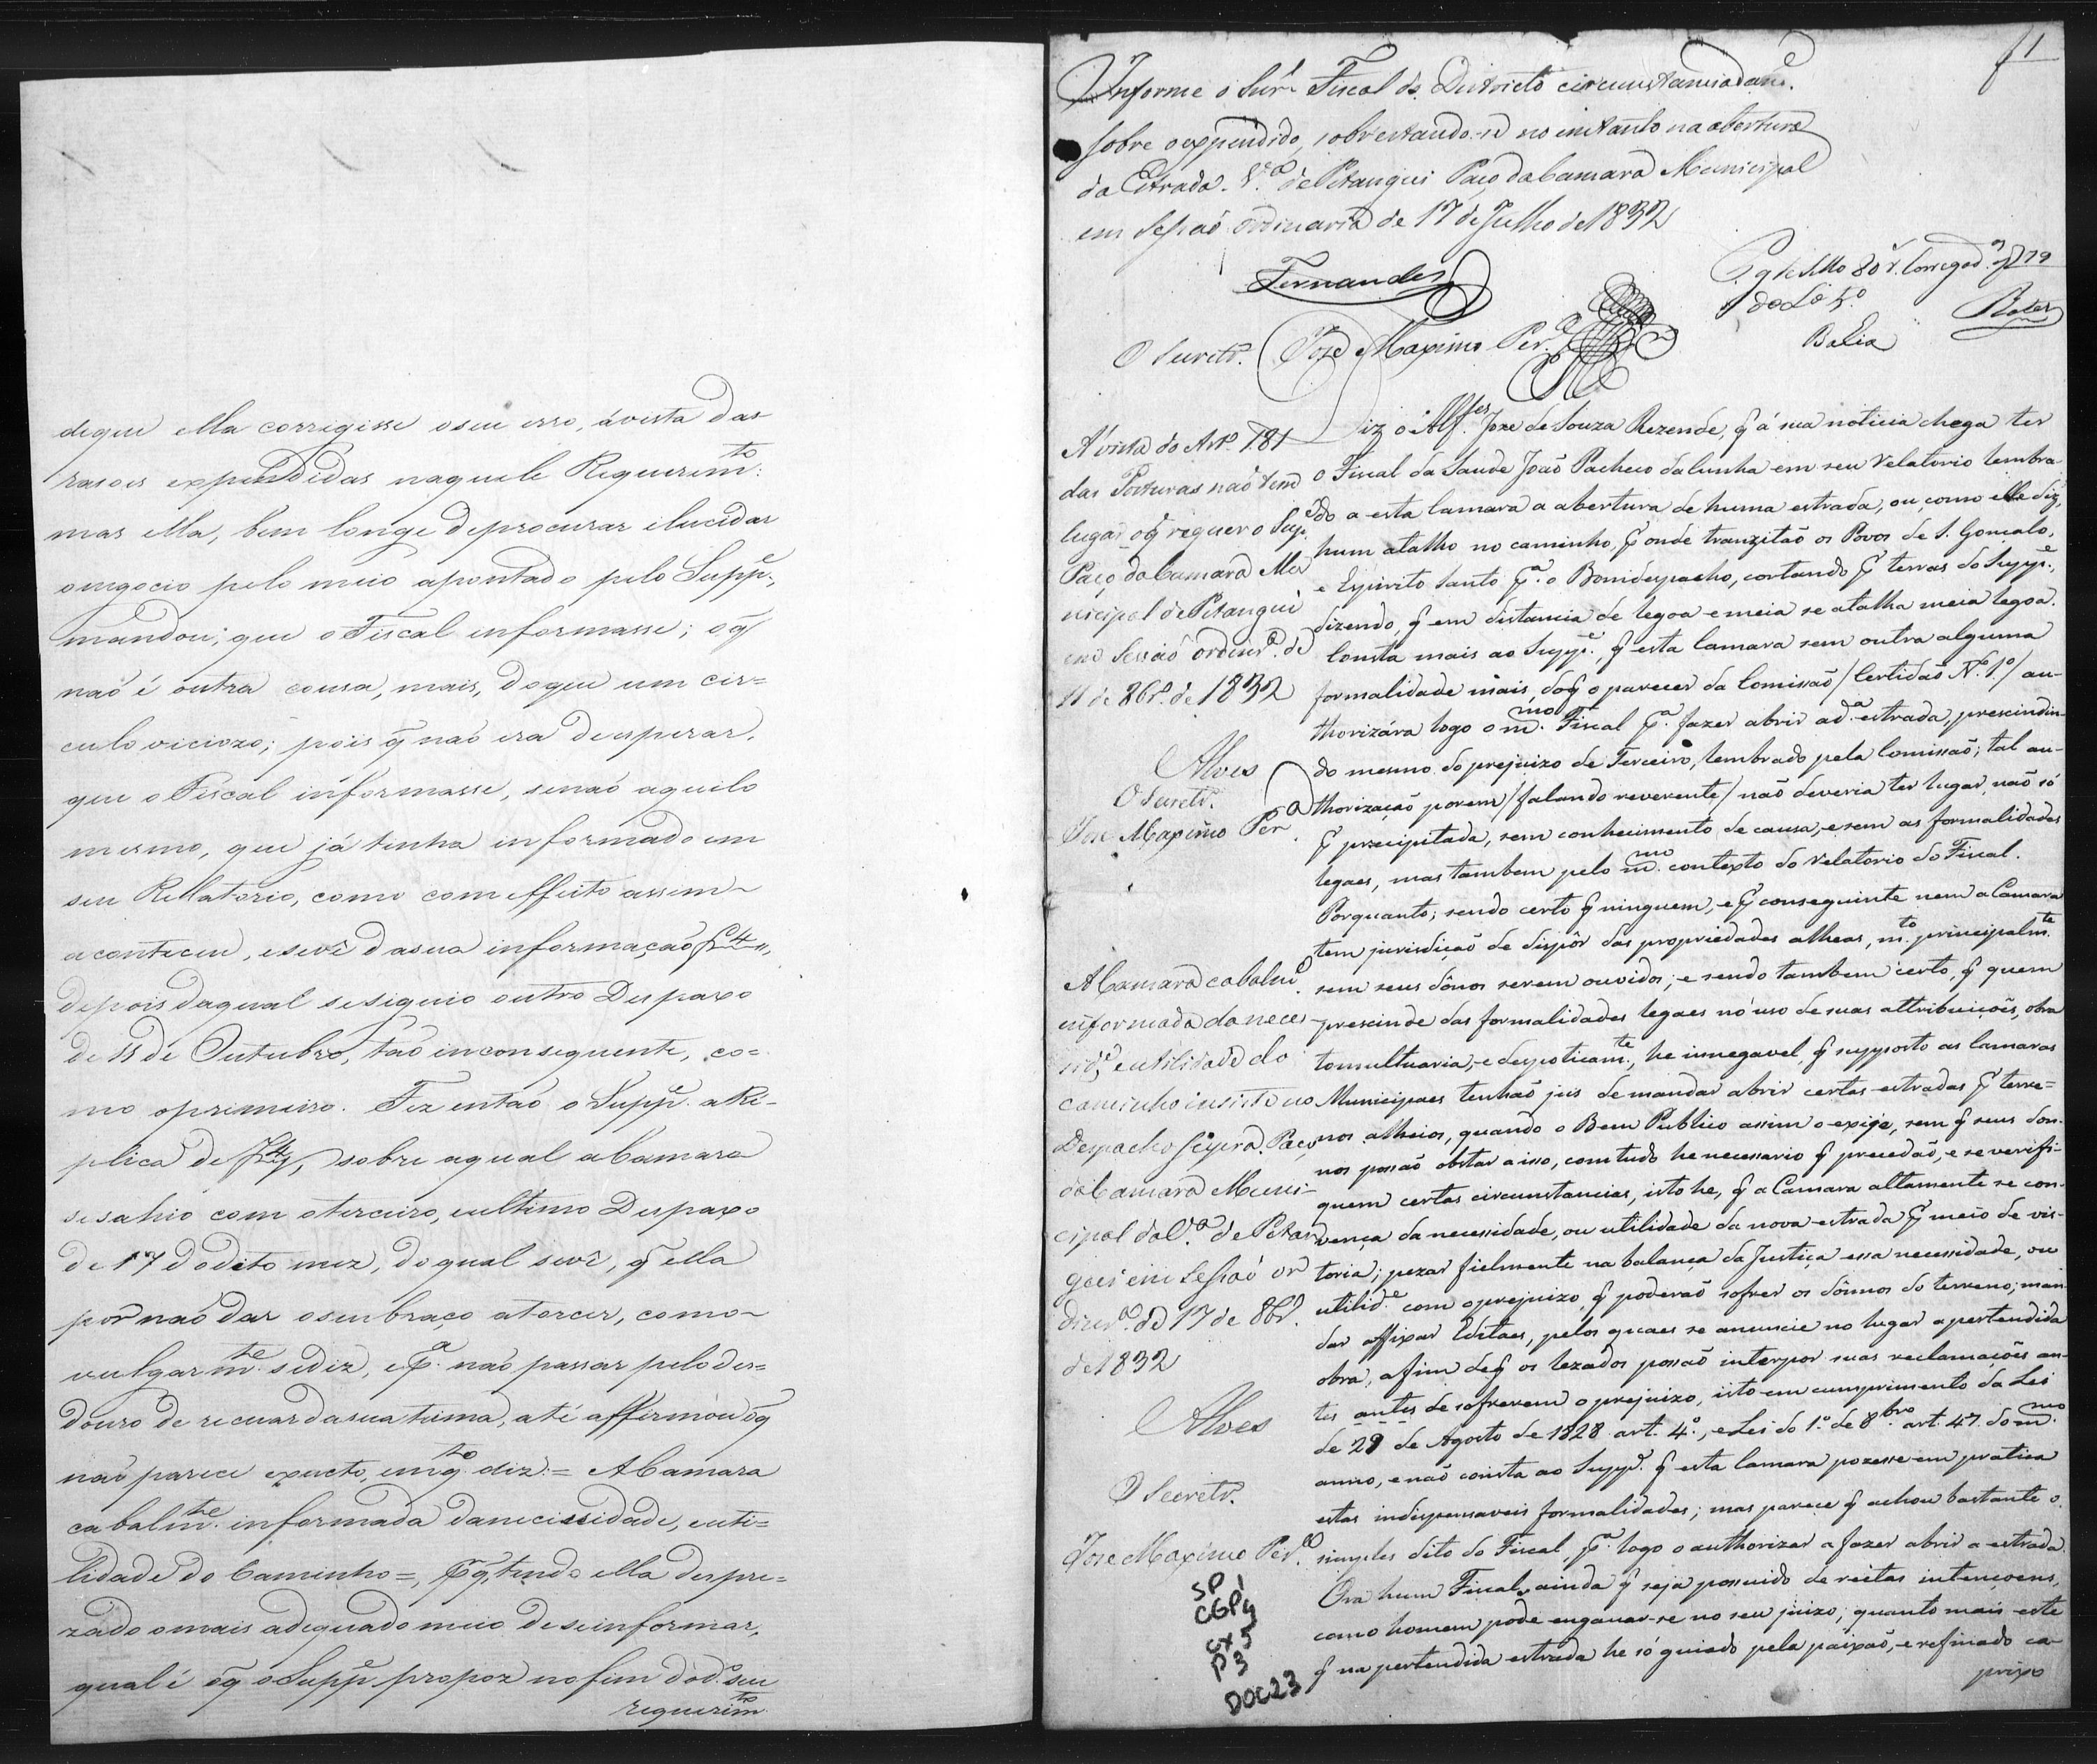 de que ella corrigisse o seu erro, á vista das
rasoes expendidas naquele Requerim.to:
mas ella, bem longe de procurar elucidar
o negocio pelo meio apontado pelo Supp.e,
mandou, que o Fiscal informasse; o q̃
naõ é outra cousa, mais, do que um cir=
culo viciozo; pois q̃ naõ era de esperar,
que o Fiscal informasse, senaõ aquilo
mesmo, que já tinha informado em
seu Rellatorio, como com effeito assim
aconteceu, e se vê da sua informaçaõ f 4,
depois da qual se siguio outro Despaxo
de 11 de Outubro, taõ inconsequente, co=
mo o primeiro. Fez entaõ o Supp.e a Ré-
plica de f 4, sobre a qual a Camara
se sahio com o terceiro, e ultimo Despaxo
de 17 do dito mez, do qual se vê, q̃ ella
por naõ dar o seu braço a torcer, como
vulgarm.te se diz, e p.a naõ passar pelo des=
douro de recuar da sua teima, até affirmou o q̃
naõ parece exacto, em q.to diz = A Camara
cabalm.te informada da necissidade, e uti=
lidade do Caminho =, P q̃, tendo ella despre=
zado o mais adequado meio de se informar,
qual é o q̃ o Supp.e propoz no fim do d.o seu
requerim.to
f 1
Informe o Snr. Fiscal do Districto circunstanciadam.e
sobre o expendido, sobrestando-se no emtanto na abertura
da Estrada. V.a de Pitangui Paço da Camara Municipal
em Sessaõ ordinaria de 17 de Julho de 1832
Fernandes
O Secretr.o Joze Maximo Per.a
do L.o 5.o
Bahia
A vista do Art.o 181
das Posturas naõ tem
lugar o q̃ requer o Sup.e
Paço da Camara Mu
nicipal de Pitangui
em Sessaõ ordinr.a de
11 de 8br.o de 1832
Alves
O Secretr.o
Joze Maximo Per.a
A Camara cabalm.e
informada da neces
sid.e, e utilidade do
caminho insiste no
Despacho supra. Paço
da Camara Muni-
cipal da V.a de Pitan
gui em Sessaõ or
dinr.a de 17 de 8br.o
de 1832
Alves
O Secretr.o
Joze Maximo Per.a
SP 1
CGP 4
CX 5
P 3
DOC 23
Diz o Alf.es Joze de Souza Rezende, q̃ á sua noticia chega ter
o Fiscal da Saude Joaõ Pacheco da Cunha em seu relatorio lembra
do a esta Camara a abertura de huma estrada, ou, como elle diz,
hum atalho no caminho, p̃ onde tranzitaõ os Povos de S. Gonçalo,
e Espirito Santo p.a o Bomdespacho, cortando p̃ terras do Supp.e,
dizendo, q̃ em distancia de legoa e meia se atalha meia legoa.
Consta mais ao Supp.e, q̃ esta Camara sem outra alguma
formalidade mais, do q̃ o parecer da Comissaõ / Certidaõ N.o 1.o / au-
thorizára logo o m.mo Fiscal p.a fazer abrir a d.a estrada, prescindin-
do mesmo do prejuizo de Terceiro, lembrado pela Comissaõ; tal au-
thorizaçaõ porem / falando reverente / naõ deveria ter lugar, naõ só
p̃ precipitada, sem conhecimento de causa, e sem as formalidades
legaes, mas tambem pelo m.mo contexto do relatorio do Fiscal.
Porquanto; sendo certo q̃ ninguem, e p̃ conseguinte nem a Camara
tem jurisdiçaõ de dispôr das propriedades alheas, m.to principalm.te
sem seus dônos serem ouvidos; e sendo tambem certo, q̃ quem
prescinde das formalidades legaes no uso de suas attribuiçoẽs, obra
tomultuaria, e despoticam.te, he innegavel, q̃ supposto as Camaras
Municipaes tenhaõ jus de mandar abrir certas estradas p̃ terre=
nos alheios, quando o Bem Publico assim o exija, sem q̃ seus don-
nos possaõ obstar a isso, comtudo he necessario q̃ precedaõ, e se verifi-
quem certas circunstancias, isto he, q̃ a Camara altamente se con-
vença da necessidade, ou utilidade da nova estrada p̃ meio de vis-
toria; pezar fielmente na balança da Justiça essa necessidade, ou
utilid.e com o prejuizo, q̃ poderaõ sofrer os dônnos do terreno; man
dar affixar Editaes, pelos quaes se anuncie no lugar a pertendida
obra, afim de q̃ os lezados possaõ interpor suas reclamaçoẽs an-
tes antes de sofrerem o prejuizo, isto em cumprimento da Lei
de 29 de Agosto de 1828 art. 4.o, e Lei do 1.o de 8bro art. 47 do m.mo
anno, e naõ consta ao Supp.e q̃ esta Camara pozesse em pratica
estas indispensaveis formalidades; mas parece q̃ achou bastante o
simples dito do Fiscal, p.a logo o authorizar a fazer abrir a estrada.
Ora hum Fiscal, ainda q̃ seja possuido de rectas intençoens,
como homem pode enganar-se no seu juizo, quanto mais este
q̃ na pertendida estrada he só guiado pela paixaõ, e refinado ca-
prixo